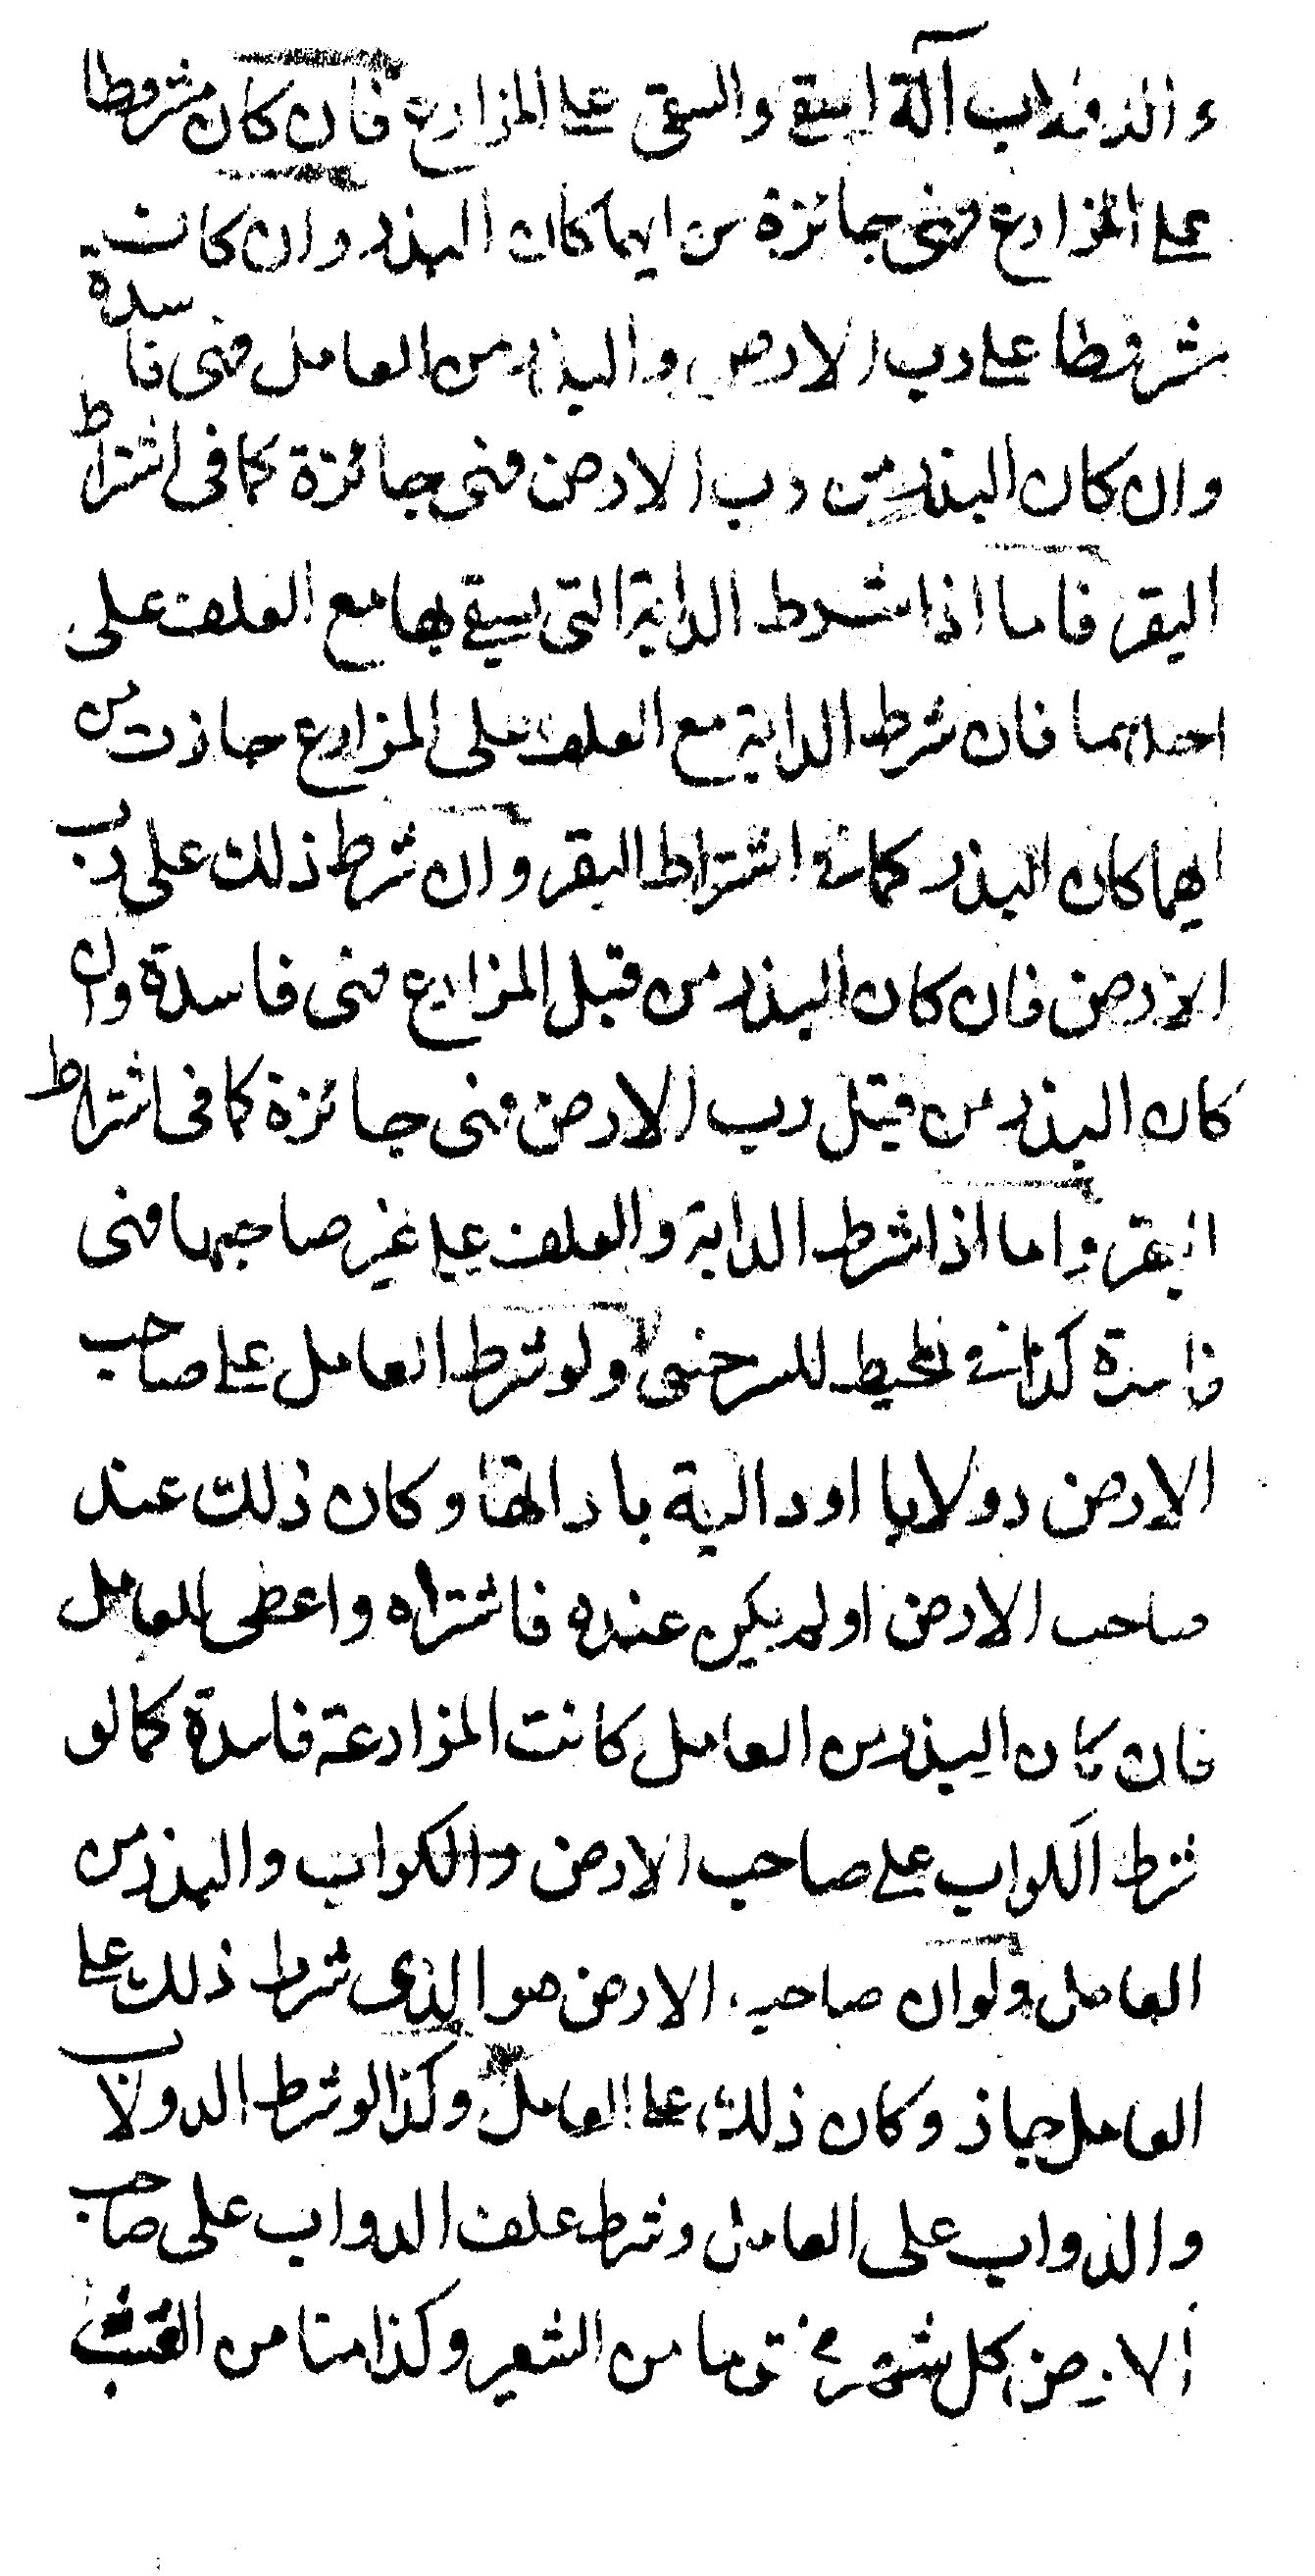 والدولاب آلة السقي والسقى على المزارع فان كان مشروطا
على المزارع فهى جائزة من ايهما كان البذر وان كانت
شروطا على رب الارض والبذر من العامل فهى فاسدة
وان كان البذر من رب الارض فهى جائزة كما فى اشتراط
البقر فاما اذا شرط الدابة التى يسقي بها مع العلف على
احدهما فان شرط الدابة مع العلف على المزارع جازت من
ايهما كان البذر كما في اشتراط البقر وان شرط ذلك على رب
الارض فان كان البذر من قبل المزارع فهى فاسدة وان
كان البذر من قبل رب الارض فهى جائزة كما فى اشتراط
البقر واما اذا شرط الدابة والعلف على غير صاحبها فهى
فاسدة كذا في المحيط للسرخسى ولو شرط العامل على صاحب
الارض دولابا او دالية باداتها وكان ذلك عند
صاحب الارض او لم يكن عنده فاشتراه واعطى العامل
فان كان البذر من العامل كانت المزارعة فاسدة كما لو
شرط الكراب على صاحب الارض والكراب والبذر من
العامل ولو ان صاحب الارض هو الذى شرط ذلك على
العامل جاز وكان ذلك على العامل وكذا لو شرط الدولاب
والدواب على العامل وشرط علف الدواب على صاحب
الارض كل شهر مختوما من الشعير وكذا منا من القت